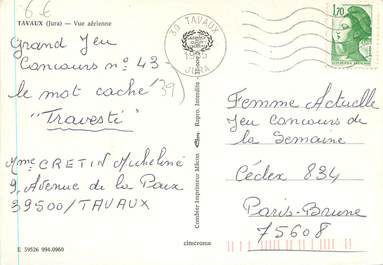 6 €
TAVAUX (Jura) — Vue aérienne
Grand Jeu
Concours n° 43
le mot caché (39)
"Travesti"
Mme CRETIN Micheline
9, Avenue de la Paix
39500/TAVAUX
E 39526 994.0960
Combier Imprimeur Mâcon
Repro. Interdite
cimcrome
39 TAVAUX
JURA
1,70
Femme Actuelle
Jeu Concours de
la Semaine
Cédex 834
Paris-Brune
75608